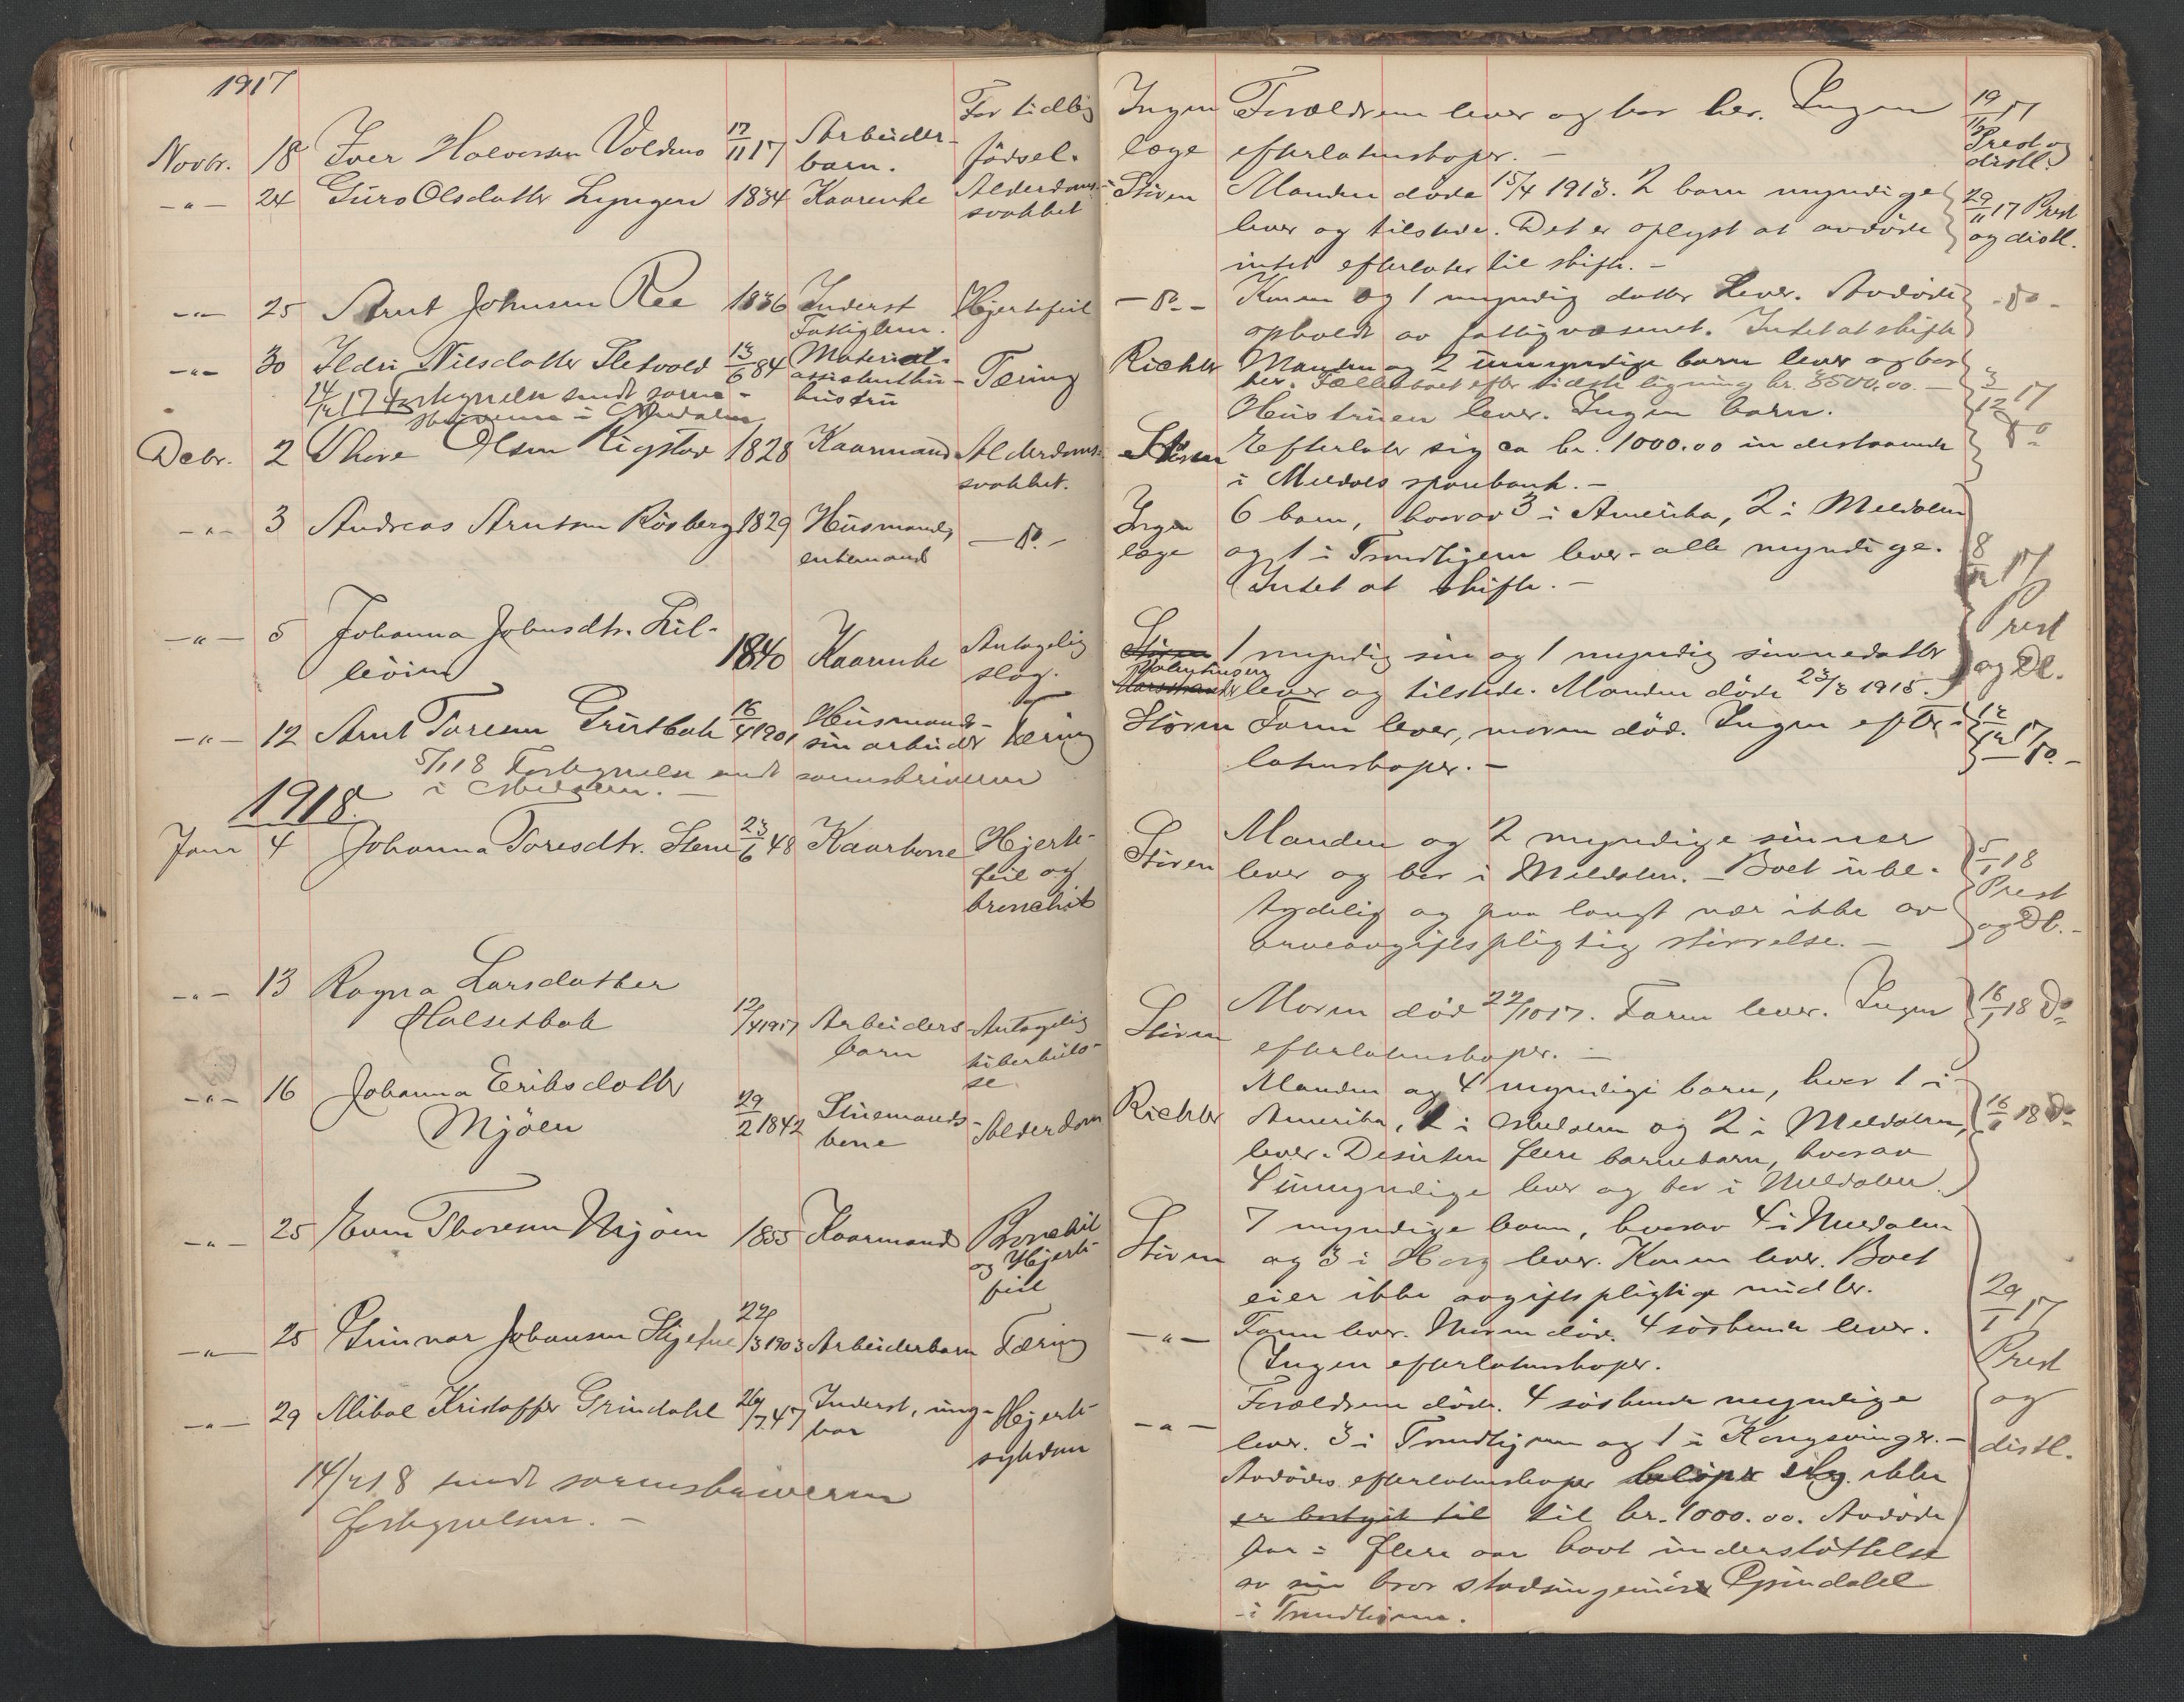 1917
For tidlig
Novbr. 18 Iver Halvorsen Voldmo 17/11 17 Arbeider-
barn. fødsel.
-"- 24 Guro Olsdatter Lyngen 1834 Kaarenke Alderdoms-
svakhet
-"- 25 Arnt Johnsen Ree 1836 Inderst Hjertefeil
Fattiglem.
-"- 30 Ildri Nilsdatter Sletvold 13/6 84 Material-
assistent hustru Tæring
14/12 17 Fortegnelse sendt soren-
skriveren i Orkdalen
Debr. 2 Thore Olsen Rigstad 1828 Kaarmand Alderdoms-
svakhet.
-"- 3 Andreas Arntsen Røsberg 1829 Husmand,
enkemand -do.-
-"- 5 Johanna Johnsdtr. Lil-
løien 1840 Kaarenke Antagelig
slag.
-"- 12 Arnt Toresen Grutbak 16/4 1901 Husmands-
søn arbeider Tæring
5/1 18 Fortegnelse sendt sorenskriveren
i Orkdalen. -
1918.
Janr 4 Johanna Toresdtr. Stene 23/6 48 Kaarkone Hjerte-
feil og
bronchit
-"- 13 Ragna Larsdatter
Halsetbak 12/4 1917 Arbeiders Antagelig
barn tuberkulo-
se
-"- 16 Johanna Eriksdatter
Mjøen 29/2 1842 Stuemands-
kone Alderdom
-"- 25 Even Thoresen Mjøen 1855 Kaarmand Bronchit
og Hjerte-
feil
-"- 25 Gunnar Johansen 22/3 1903 Arbeiderbarn Tæring
-"- 29 Mikal Kristoffer Grindahl 26/7 47 Inderst, ung- Hjerte-
kar sykdom
14/2 18 sendt sorenskriveren
fortegnelsen. -
Ingen Forældrene lever og bor her. Ingen 19/11 17
læge efterlatenskaper. - Prest og
distl.
Støren Manden døde 15/4 1913. 2 barn myndige 29/11 17 Prest
lever og tilstede. Det er oplyst at avdøde og distl.
intet efterlater til skifte. -
-do.- Konen og 1 myndig datter lever. Avdøde -do-
opholdt av fattigvæsenet. Intet at skifte
Richter Manden og 2 umyndige barn lever og bor
her. Fællesboet efter sidste ligning kr. 3500,00. - 3/12 17
Hustruen lever. Ingen barn. do
Støren Efterlater sig ca kr. 1000.00 indestaaende
i Meldals sparebank. -
Ingen 6 barn, hvorav 3 i Amerika, 2 i Meldalen
læge og 1 i Trondhjem lever - alle myndige. 8/12 17
Intet at skifte. - Prest
Støren 1 myndig søn og 1 myndig sønnedatter og Dl.
lever og tilstede. Manden døde 23/3 1915.
Støren Faren lever, moren død. Ingen efter- 12/12 17
latenskaper. - -do.-
Støren Manden og 2 myndige sønner
lever og bor i Meldalen. - Boet ube- 5/1 18
tydelig og paa langt nær ikke av Prest
arveavgiftspligtig størrelse. - og Dl. -
Støren Moren død 22/10 17. Faren lever. Ingen 16/1 18 do
efterlatenskaper. -
Richter Manden og 4 myndige barn, hvor 1 i
Amerika, 1 i Orkdalen og 2 i Meldalen, 16/1 18 do
lever. Desuten flere barnebarn, hvorav
4 umyndige lever og bor i Meldalen.
Støren 7 myndige barn, hvorav 4 i Meldalen
og 3 i Horg lever. Konen lever. Boet
eier ikke avgiftspligtige midler. 29/1 17
-"- Faren lever. Moren død. 4 søskende lever. Prest
Ingen efterlatenskaper. og
-"- Forældrene døde. 4 søskende myndige distl.
lever. 3 i Trondhjem og 1 i Kongsvinger. -
Avdødes efterlatenskaper beløper sig ikke
til kr. 1000.00. Avdøde
har i flere aar havt understøttelse
av sin bror stadsingeniør Grindahl
i Trondhjem.